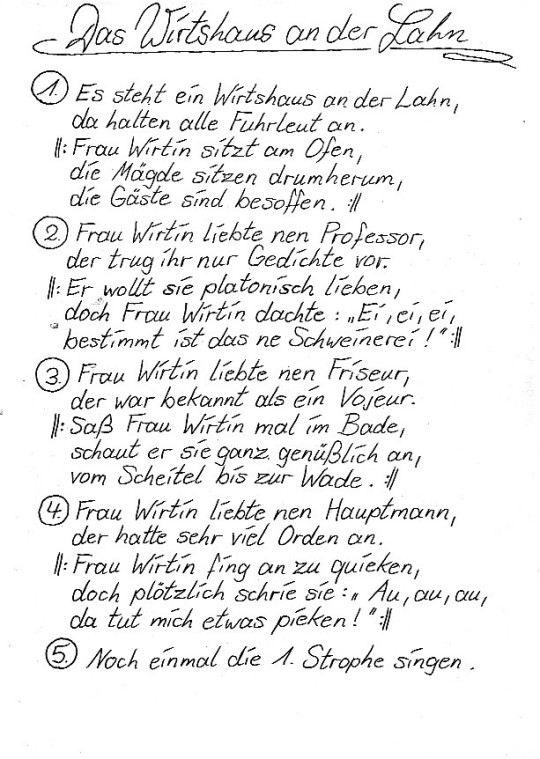 Das Wirtshaus an der Lahn
1. Es steht ein Wirtshaus an der Lahn,
da halten alle Fuhrleut an.
||: Frau Wirtin sitzt am Ofen,
die Mägde sitzen drumherum,
die Gäste sind besoffen. :||
2. Frau Wirtin liebte nen Professor,
der trug ihr nur Gedichte vor.
||: Er wollt sie platonisch lieben,
doch Frau Wirtin dachte: „Ei, ei, ei,
bestimmt ist das ne Schweinerei!" :||
3. Frau Wirtin liebte nen Friseur,
der war bekannt als ein Vojeur.
||: Saß Frau Wirtin mal im Bade,
schaut er sie ganz genüßlich an,
vom Scheitel bis zur Wade. :||
4. Frau Wirtin liebte nen Hauptmann,
der hatte sehr viel Orden an.
||: Frau Wirtin fing an zu quieken,
doch plötzlich schrie sie: „Au, au, au,
da tut mich etwas pieken!" :||
5. Noch einmal die 1. Strophe singen.